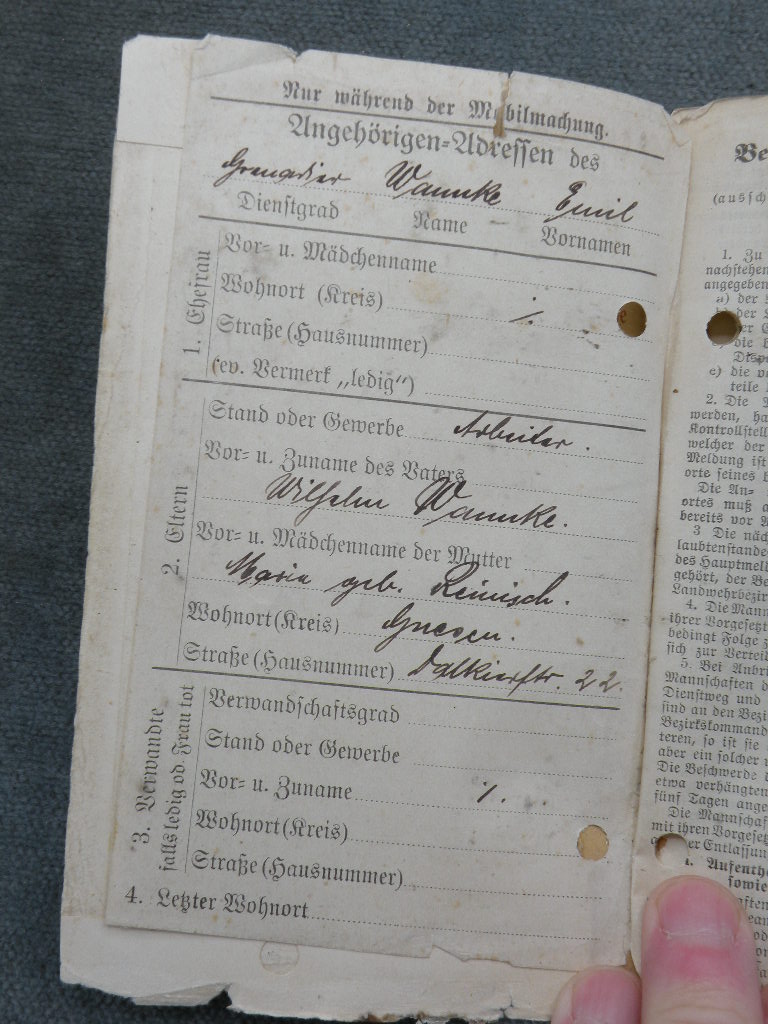 Nur während der Mobilmachung.
Angehörigen-Adressen des
Grenadier Wannke Emil
Dienstgrad Name Vornamen
1. Ehefrau
Vor- u. Mädchenname
Wohnort (Kreis) ./.
Straße (Hausnummer)
(ev. Vermerk „ledig")
2. Eltern
Stand oder Gewerbe Arbeiter.
Vor- u. Zuname des Vaters
Wilhelm Wannke.
Vor- u. Mädchenname der Mutter
Maria geb. Reinisch.
Wohnort (Kreis) Gnesen.
Straße (Hausnummer) Dalkierstr. 22.
3. Verwandte
falls ledig od. Frau tot
Verwandschaftsgrad
Stand oder Gewerbe
Vor- u. Zuname ./.
Wohnort (Kreis)
Straße (Hausnummer)
4. Letzter Wohnort
Be
(aussch
1. Zu
nachstehen
angegeben
a) der
der
die
Disp
c) die
teile
2. Die
werden, ha
Kontrollstell
welcher der
Meldung ist
orte seines
Die An-
ortes muß
bereits vor
3 Die näch
laubtenstande
des Hauptmel
gehört, der Be
Landwehrbezir
4. Die Mann
ihrer Vorgesetzt
bedingt Folge
sich zur Verteil
5. Bei Anbri
Mannschaften d
Dienstweg und
sind an den Bezi
Bezirkskommand
teren, so ist sie
aber ein solcher
Die Beschwerde
etwa verhängten
fünf Tagen ange
Die Mannschaf
mit ihren Vorgesetz
er Entlassun
1. Aufentha
sowie